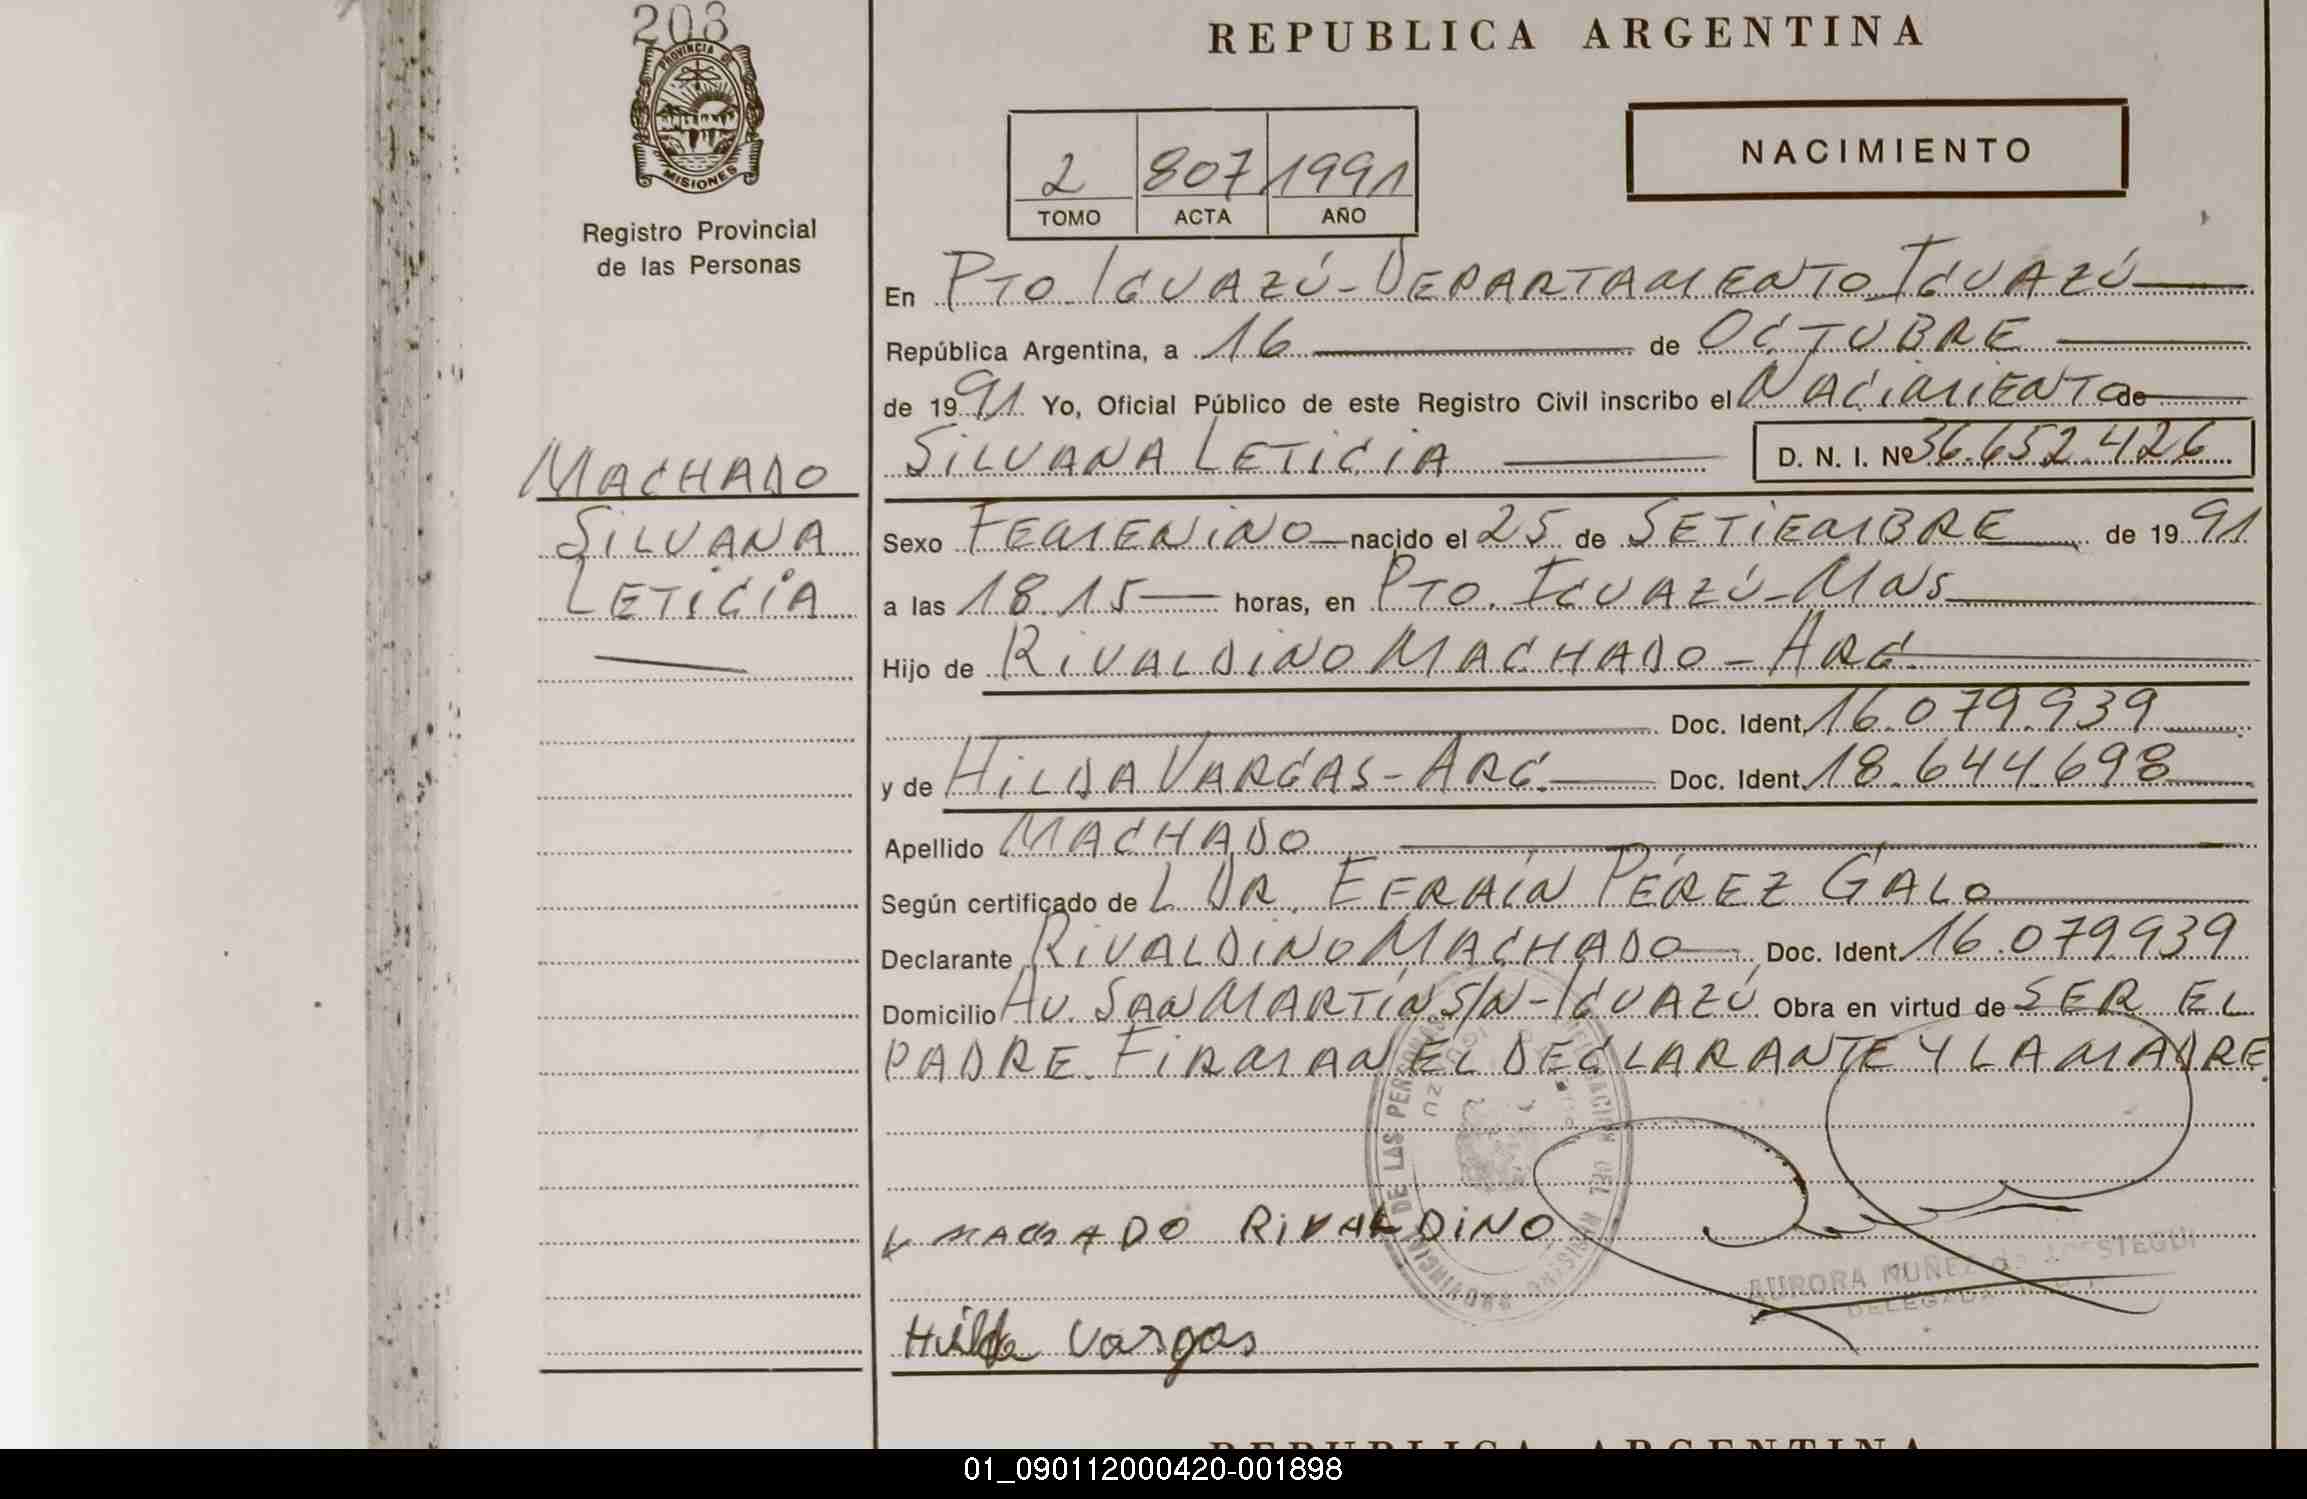 203
PROVINCIA DE
MISIONES
Registro Provincial
de las Personas
MACHADO
SILVANA
LETICIA
REPUBLICA ARGENTINA
2 807 1991
TOMO ACTA AÑO
NACIMIENTO
En PTO. IGUAZÚ - DEPARTAMENTO IGUAZÚ
República Argentina, a 16 de OCTUBRE
de 1991 Yo, Oficial Público de este Registro Civil inscribo el NACIMIENTO de
SILVANA LETICIA D. N. I. Nº 36.652.426
Sexo FEMENINO nacido el 25 de SETIEMBRE de 1991
a las 18.15 horas, en PTO. IGUAZÚ - MNS
Hijo de RIVALDINO MACHADO - ARG.
Doc. Ident. 16.079.939
y de HILDA VARGAS - ARG. Doc. Ident. 18.644.698
Apellido MACHADO
Según certificado de L DR. EFRAÍN PÉREZ GALO
Declarante RIVALDINO MACHADO Doc. Ident. 16.079939
Domicilio AV. SAN MARTÍN S/N - IGUAZÚ Obra en virtud de SER EL
PADRE. FIRMAN EL DECLARANTE Y LA MADRE.
MACHADO RIVALDINO
AURORA NUÑEZ de
DELEGADA
Hilda Vargas
REPUBLICA ARGENTINA
01_090112000420-001898